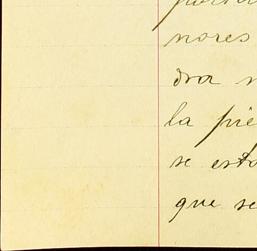 nores
dra
la pie
se esta
que se